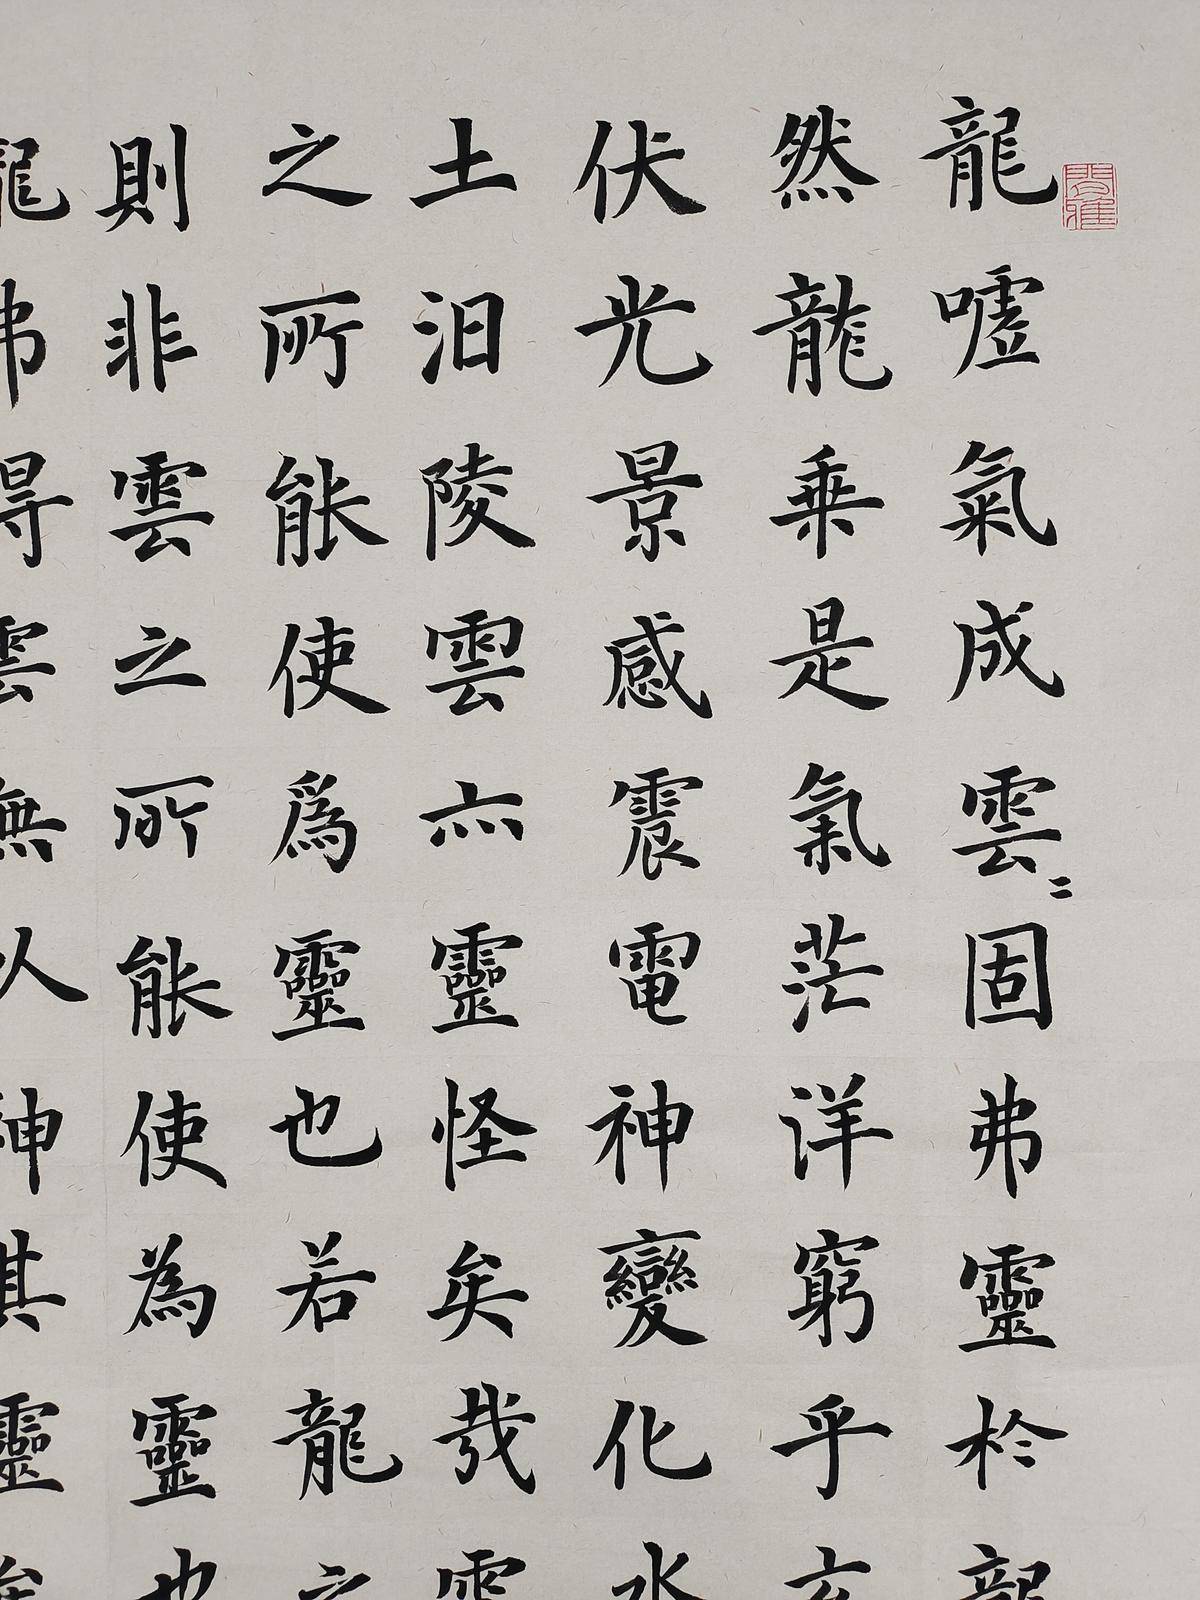 龍噓氣成雲〻固弗靈於龍
然龍乘是氣茫洋窮乎玄
伏光景感震電神變化水
土汩陵雲亦靈怪矣哉雲
之所能使爲靈也若龍之
則非雲之所能使為靈也
龍弗得雲無以神其靈矣